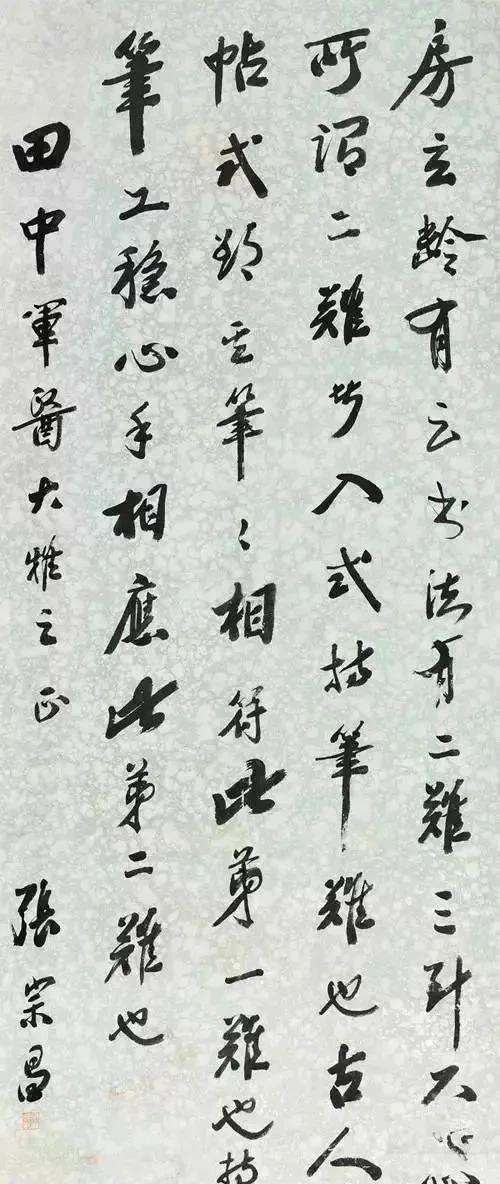 房玄齡有云書法有二難三到不心
所謂二難者入式持筆難也古人
帖式 云筆々相符此第一難也持
筆工穩心手相應此第二難也
田中軍醫大雅之正
張宗昌